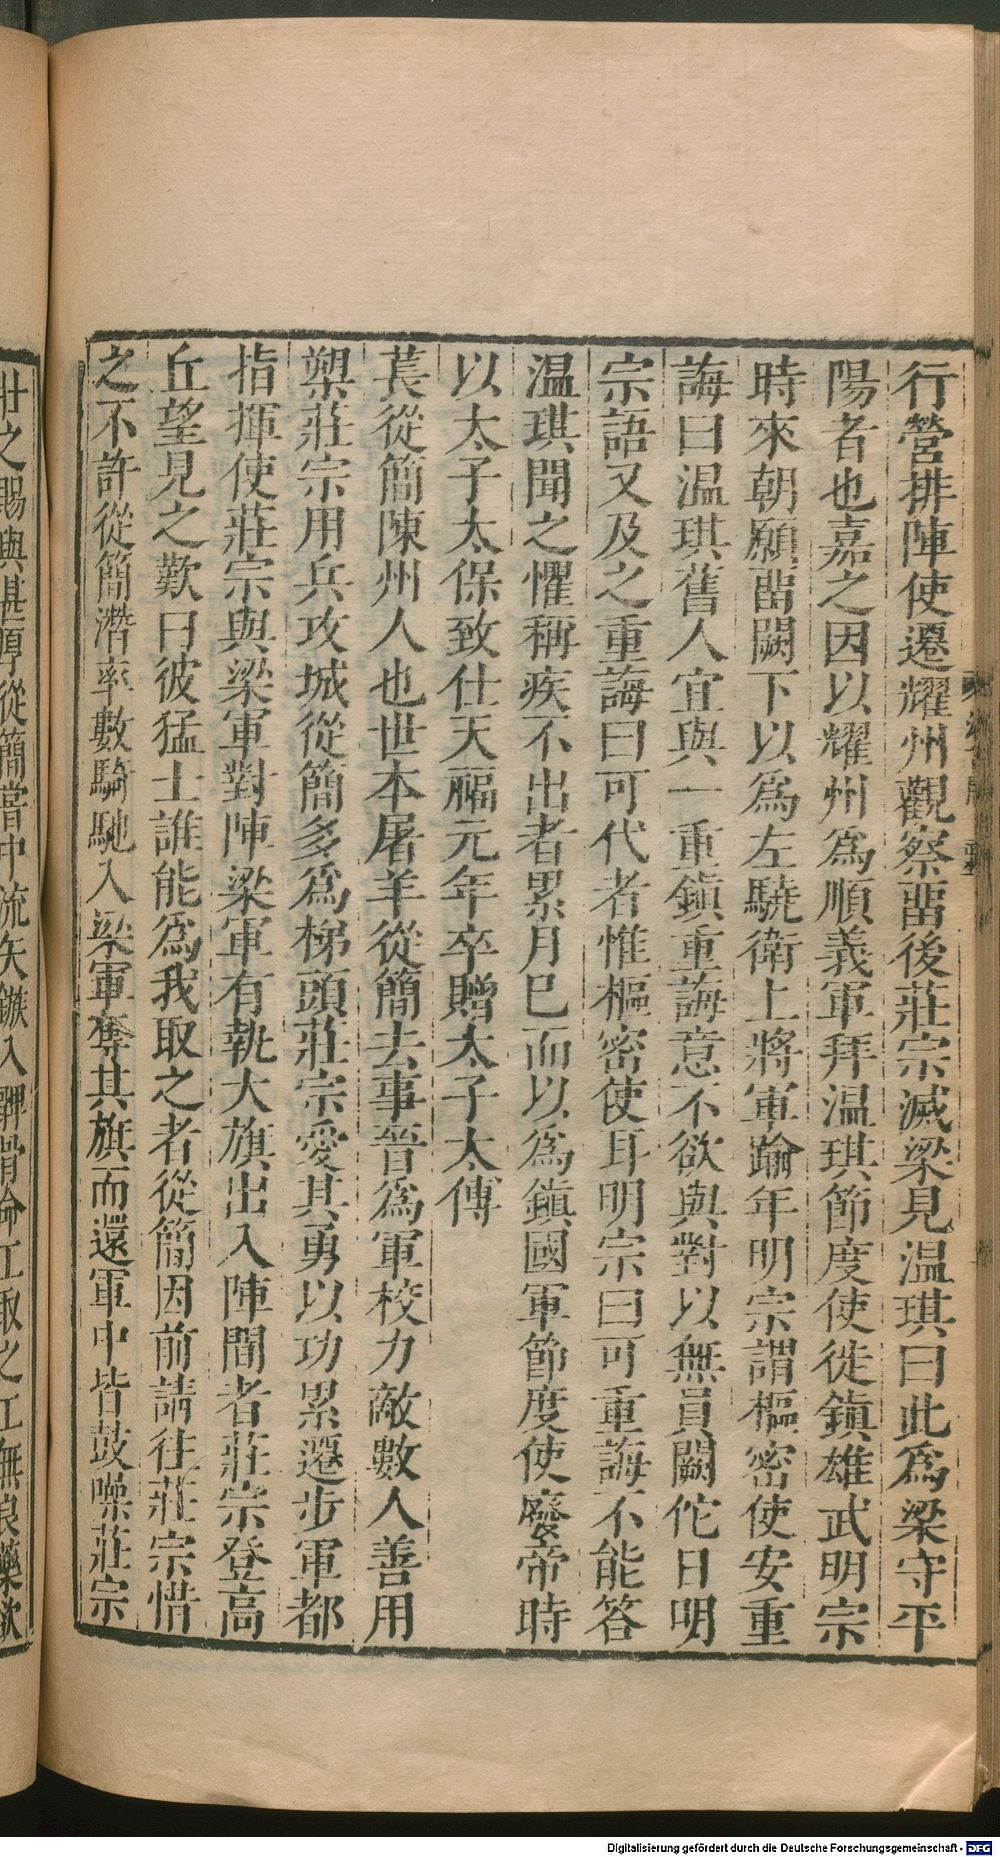 行營排陣使遷耀州觀察畱後莊宗滅梁見温琪曰此爲梁守平
陽者也嘉之因以耀州爲順義軍拜温琪節度使徙鎮雄武明宗
時來朝願畱闕下以爲左驍衛上將軍踰年明宗謂樞密使安重
誨曰温琪舊人宜與一重鎮重誨意不欲與對以無員闕佗日明
宗語又及之重誨曰可代者惟樞密使耳明宗曰可重誨不能答
温琪聞之懼稱疾不出者累月巳而以爲鎮國軍節度使廢帝時
以太子太保致仕天福元年卒贈太子太傅
萇從簡陳州人也世本屠羊從簡去事晉爲軍校力敵數人善用
槊莊宗用兵攻城從簡多爲梯頭莊宗愛其勇以功累遷步軍都
指揮使莊宗與梁軍對陣梁軍有執大旗出入陣間者莊宗登高
丘望見之歎曰彼猛士誰能爲我取之者從簡因前請往莊宗惜
之不許從簡潛率數騎馳入梁軍奪其旗而還軍中皆鼓噪莊宗
壯之賜與甚厚從簡嘗中流矢鏃入髀骨命工取之工無良藥欲
Digitalisierung gefördert durch die Deutsche Forschungsgemeinschaft - DFG